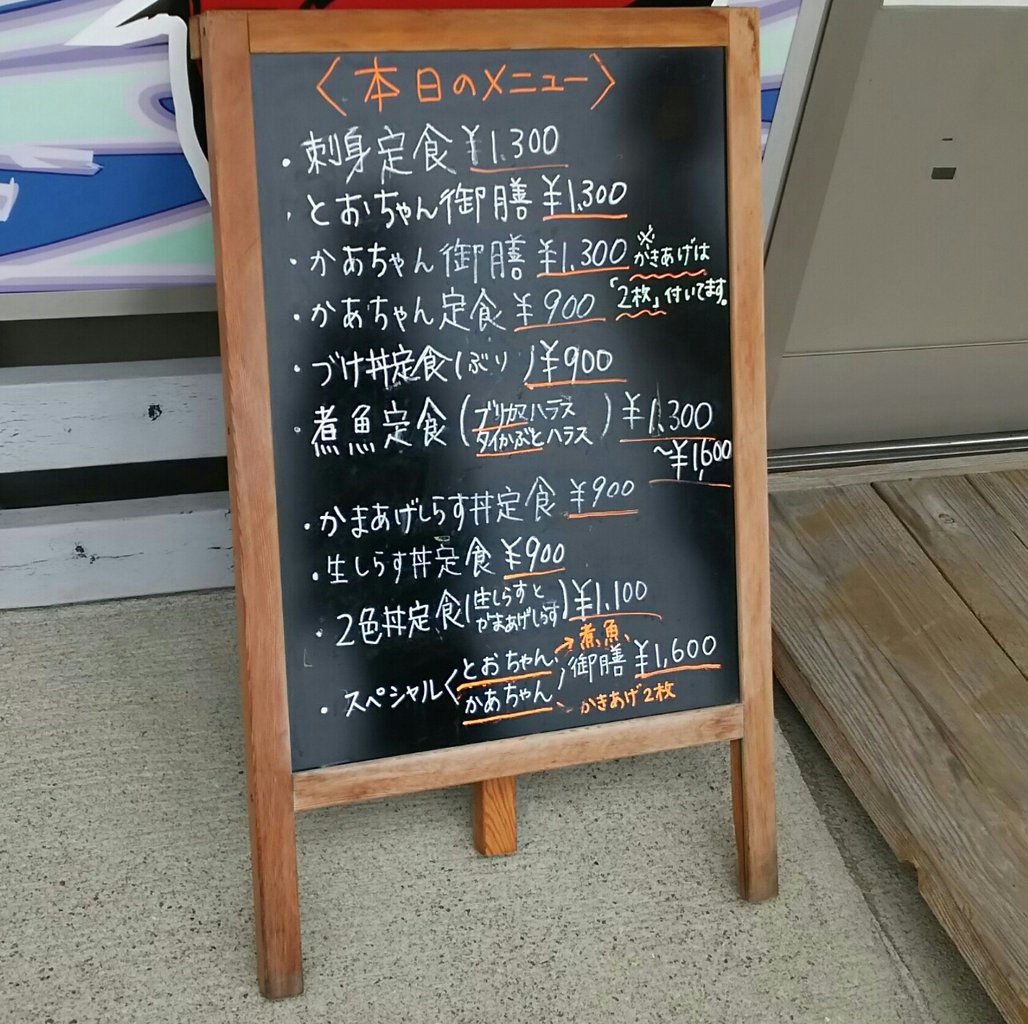 〈本日のメニュー〉
・刺身定食 ¥1.300
・とおちゃん御膳 ¥1.300
・かあちゃん御膳 ¥1.300 ※かきあげは
「2枚」付いてます。
・かあちゃん定食 ¥900
・づけ丼定食(ぶり)¥900
・煮魚定食(ブリカマハラス
タイかぶとハラス) ¥1.300
～¥1,600
・かまあげしらす丼定食 ¥900
・生しらす丼定食 ¥900
・2色丼定食(生しらすと
かまあげしらす)¥1.100
→煮魚、
・スペシャル〈とおちゃん、
かあちゃん、〉御膳 ¥1,600
かきあげ2枚